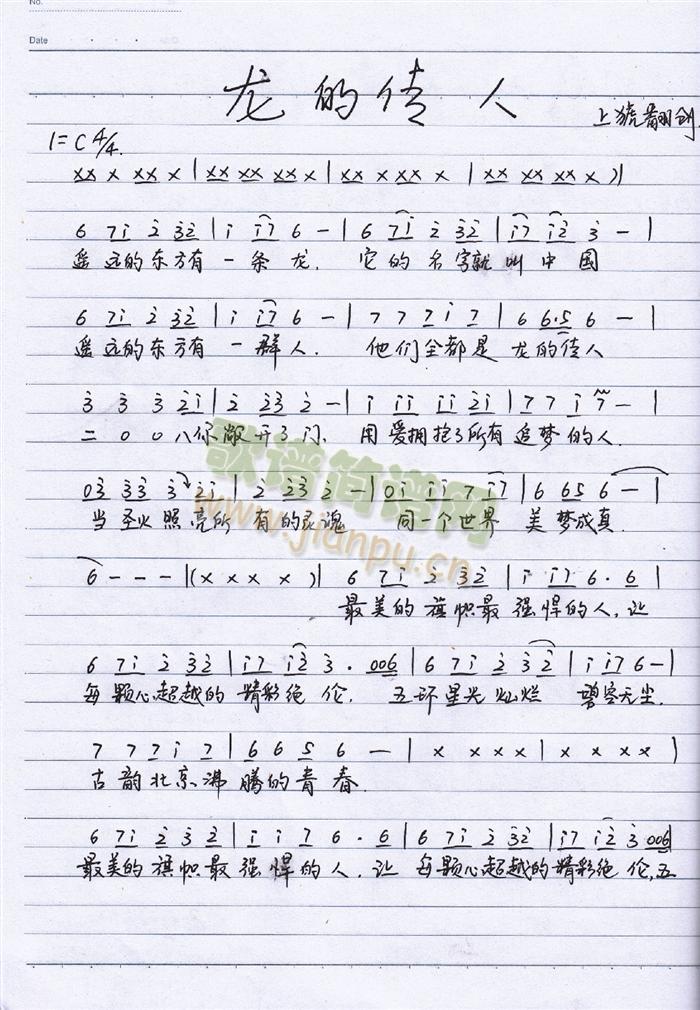 No.
Date
龙的传人
上犹翻创
1=C 4/4
xx x xx x | xx xx xx x | xx xx xx x | xx xx xx x )|
6 7i 2 32 | i i7 6 - | 6 7i 2 32 | i7 i2 3 - |
遥远的东方有一条龙. 它的名字就叫中国
6 7i 2 32 | i i7 6 - | 7 7 7 i 7 | 6 6·5 6 - |
遥远的东方有一群人. 他们全都是龙的传人
3 3 3 2i | 2 23 2 - | i ii ii 2i | 7 7 i 7 - |
二〇〇八你敞开了门. 用爱拥抱了所有追梦的人.
03 33 3 2i | 2 23 2 - | 0i ii 7 i7 | 6 65 6 - |
当圣火照亮所有的灵魂 同一个世界 美梦成真.
6 - - - |(x x x x)| 6 7i 2 32 | i i7 6. 6 |
最美的旗帜最强悍的人,让
6 7i 2 32 | i7 i2 3. 006 | 6 7i 2 32 | i i7 6 - |
每颗心超越的精彩绝伦. 五环星光灿烂 碧空无尘.
7 7 7 i 7 | 6 6 5 6 — | x x x x | x x x x )
古韵北京沸腾的青春.
6 7i 2 3 2 | i i 7 6. 6 | 6 7i 2 32 | i7 i2 3 006 |
最美的旗帜最强悍的人,让每颗心超越的精彩绝伦,五
歌谱简谱网
www.jianpu.cn